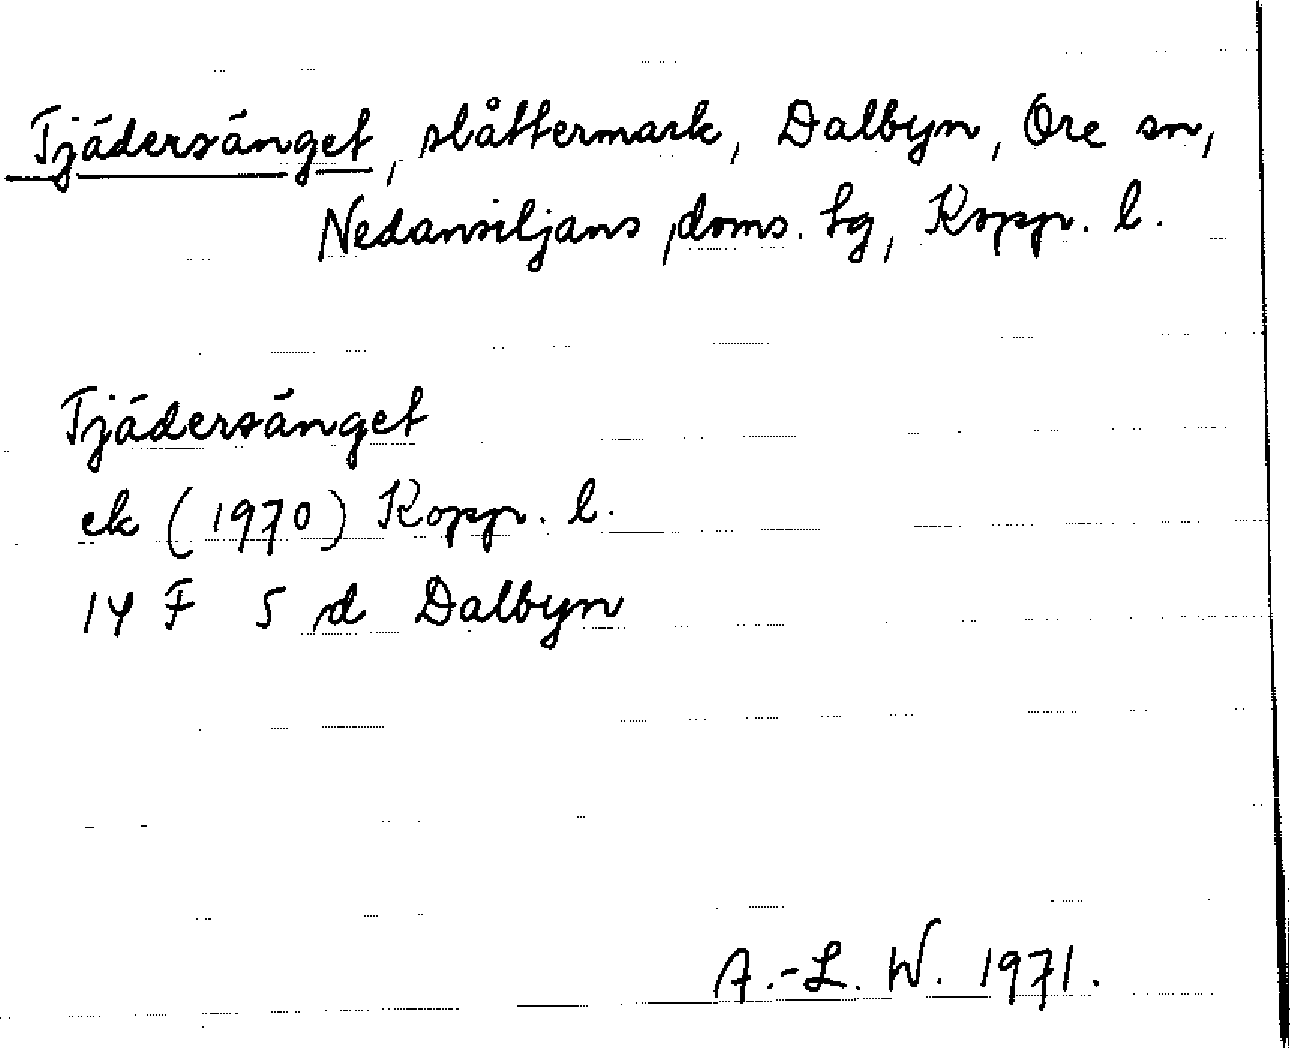 Tjädersänget, slåttermark, Dalbyn, Ore sn,
Nedansiljans doms. tg, Kopp. l.
Tjädersänget
ek (1970) Kopp. l.
14 F 5 d Dalbyn
A.-L. W. 1971.